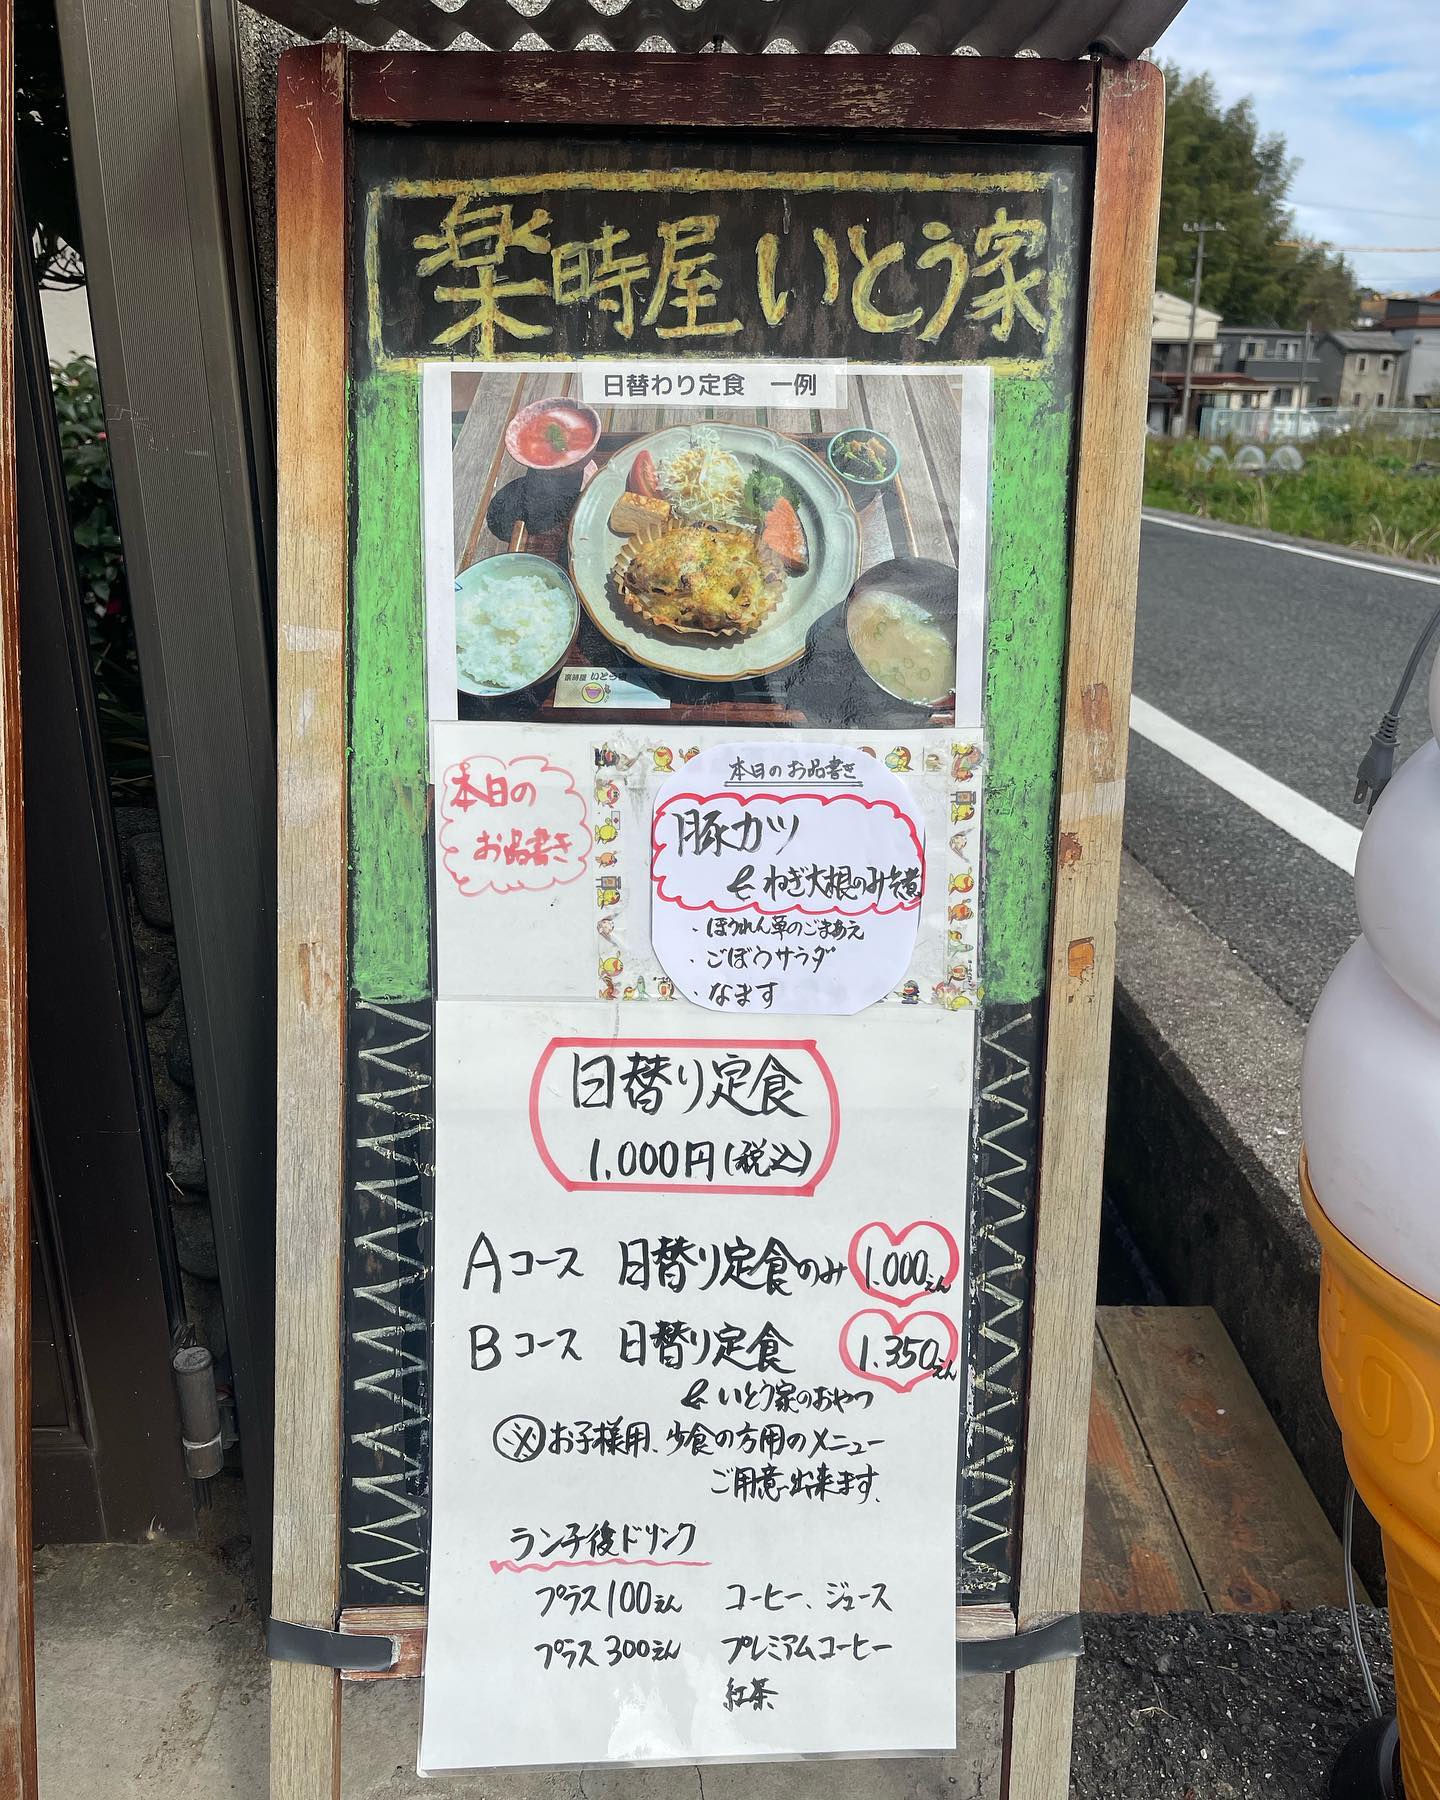 楽時屋 いとう家
日替わり定食　一例
楽時屋 いとう家
本日の
お品書き
本日のお品書き
豚カツ
& ねぎ大根のみそ煮
・ほうれん草のごまあえ
・ごぼうサラダ
・なます
日替り定食
1,000円(税込)
Aコース 日替り定食のみ 1.000えん
Bコース 日替り定食 1.350えん
& いとう家のおやつ
※お子様用、少食の方用のメニュー
ご用意出来ます。
ランチ後ドリンク
プラス100えん コーヒー、ジュース
プラス300えん プレミアムコーヒー
紅茶